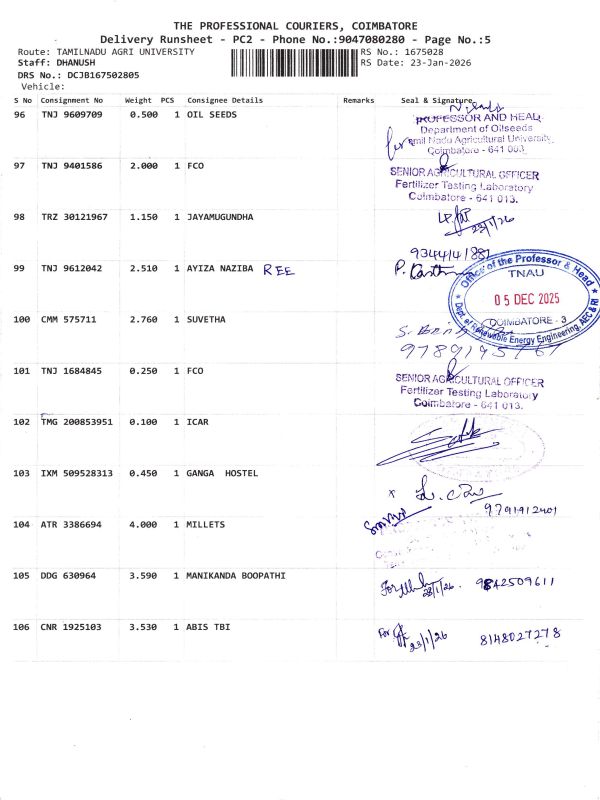 THE PROFESSIONAL COURIERS, COIMBATORE
Delivery Runsheet - PC2 - Phone No.:9047080280 - Page No.:5
Route: TAMILNADU AGRI UNIVERSITY RS No.: 1675028
Staff: DHANUSH RS Date: 23-Jan-2026
DRS No.: DCJB167502805
Vehicle:
S No Consignment No Weight PCS Consignee Details Remarks Seal & Signature
96 TNJ 9609709 0.500 1 OIL SEEDS
PROFESSOR AND HEAD
Department of Oilseeds
Tamil Nadu Agricultural University,
Coimbatore - 641 003.
97 TNJ 9401586 2.000 1 FCO
SENIOR AGRICULTURAL OFFICER
Fertilizer Testing Laboratory
Coimbatore - 641 013.
98 TRZ 30121967 1.150 1 JAYAMUGUNDHA
23/1/26
9344141881
99 TNJ 9612042 2.510 1 AYIZA NAZIBA REE
Office of the Professor & Head
TNAU
05 DEC 2025
COIMBATORE - 3
Dept. of Renewable Energy Engineering, AEC & RI
100 CMM 575711 2.760 1 SUVETHA
101 TNJ 1684845 0.250 1 FCO
SENIOR AGRICULTURAL OFFICER
Fertilizer Testing Laboratory
Coimbatore - 641 013.
102 TMG 200853951 0.100 1 ICAR
103 IXM 509528313 0.450 1 GANGA HOSTEL
9791912401
104 ATR 3386694 4.000 1 MILLETS
105 DDG 630964 3.590 1 MANIKANDA BOOPATHI
For 9842509611
106 CNR 1925103 3.530 1 ABIS TBI
For 23/1/26 8148027278